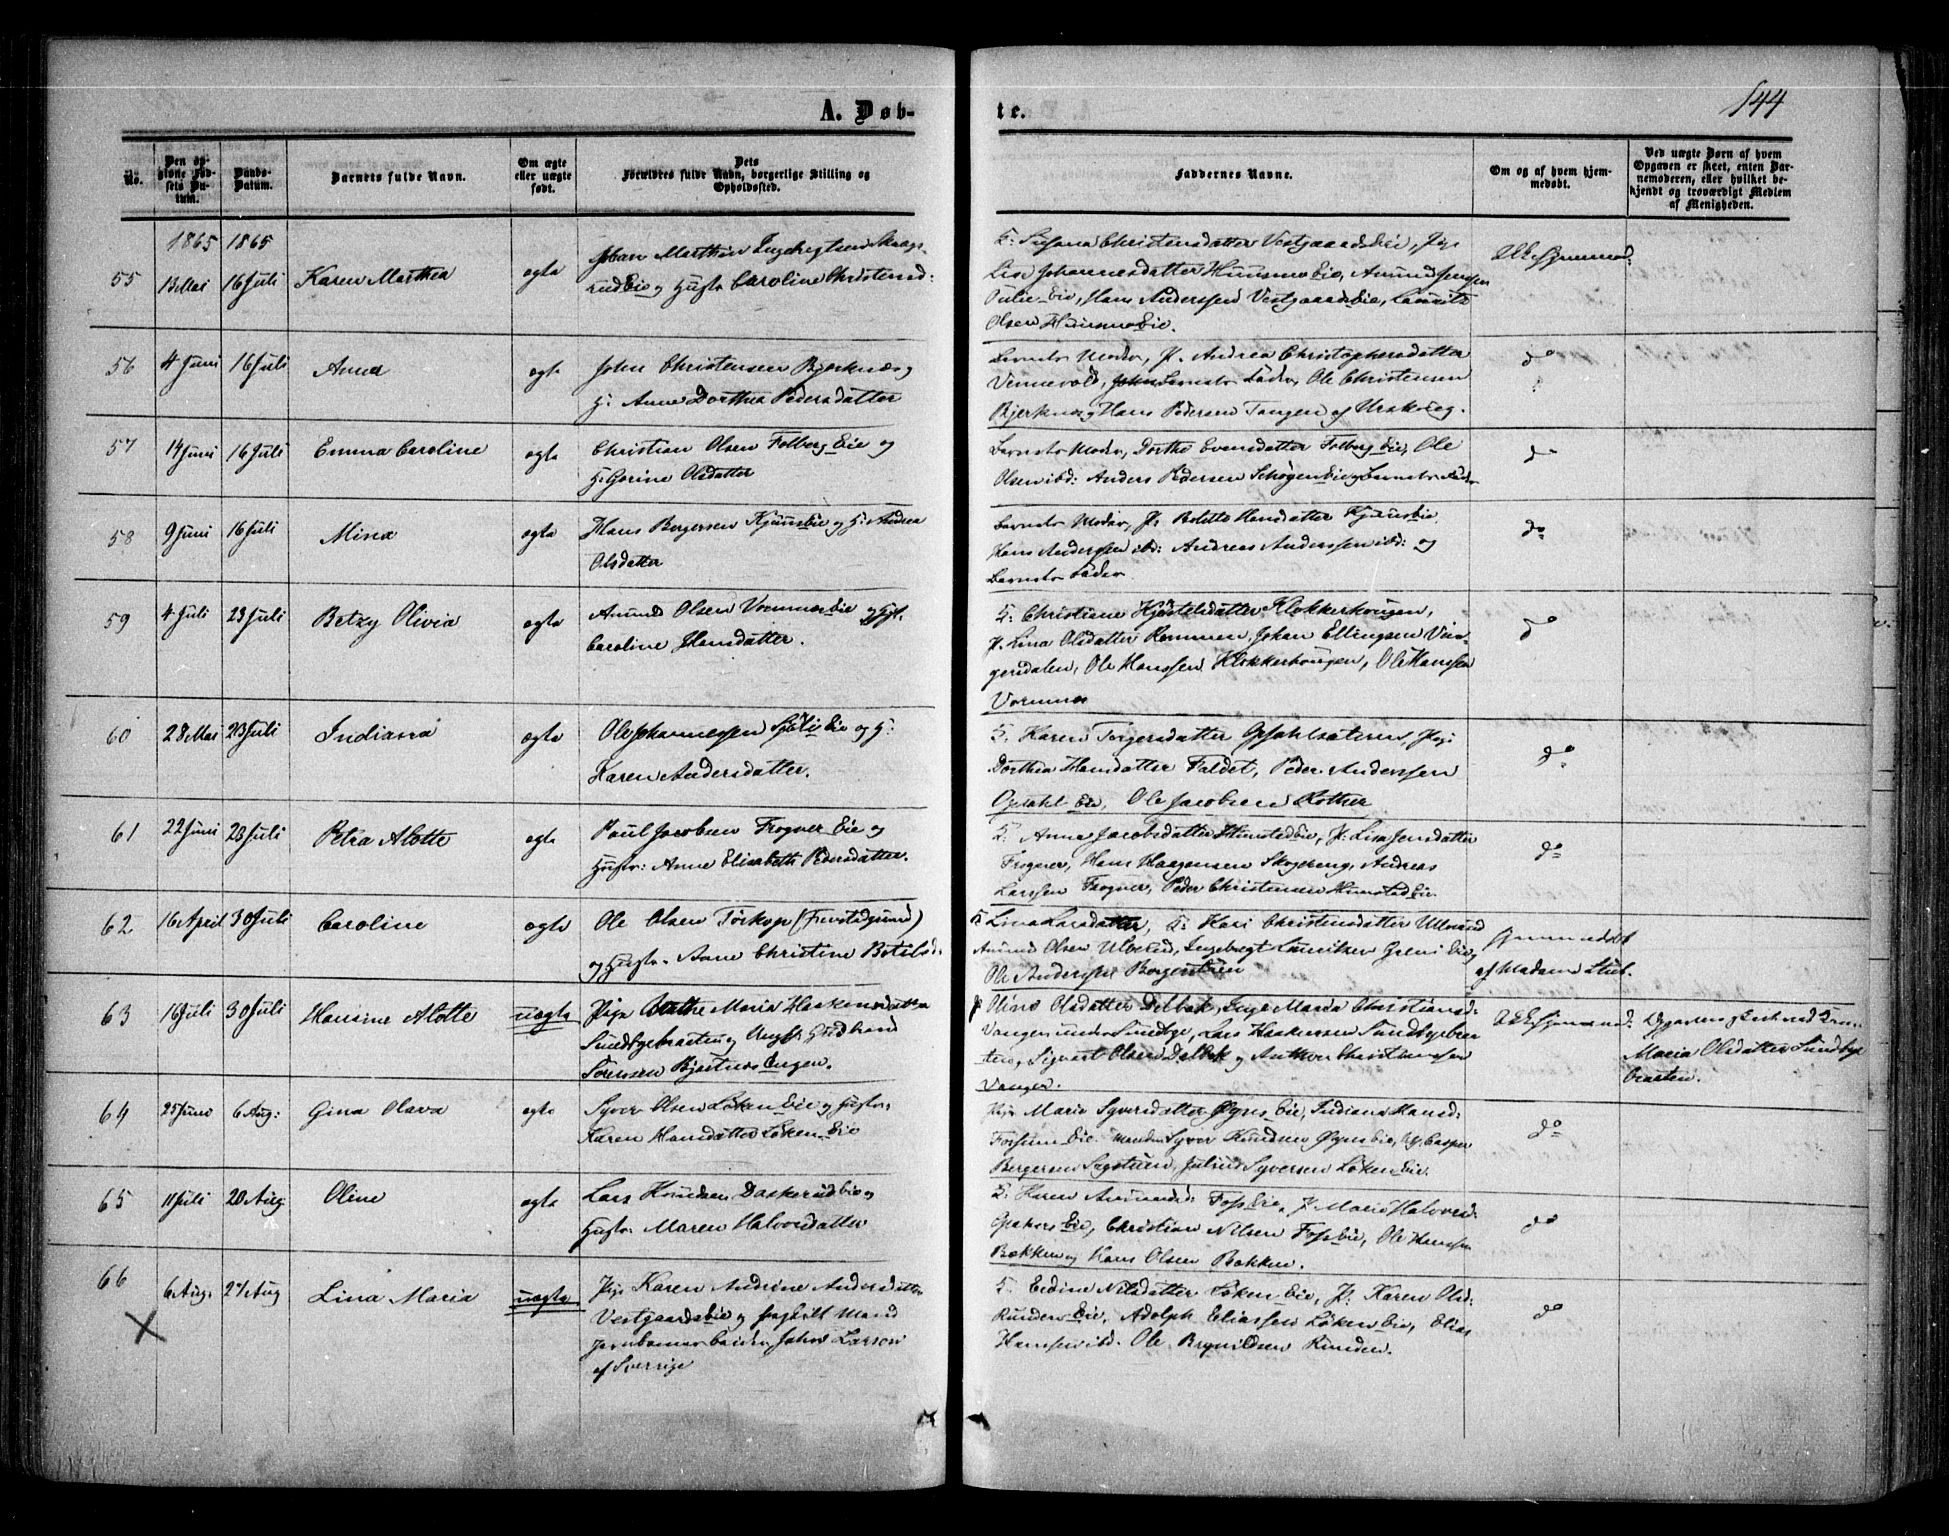 A. Døb-
te.
144
No.
Den op-
givne Fød-
sels Da-
tum.
Daabs-
Datum.
Barnets fulde Navn.
Om ægte
eller uægte
født.
Dets
Forældres fulde Navn, borgerlige Stilling og
Opholdssted.
Faddernes Navne.
Om og af hvem hjem-
medøbt.
Ved uægte Børn af hvem
Opgaven er skeet, enten Bar-
nemoderen, eller hvilket be-
kjendt og troværdigt Medlem
af Menigheden.
1865 1865
55 13 Mai 16 Juli Karen Mathea ægte
Johan Marthin Ingebregtsen
Eie og Hustr Caroline Christensd:
F: Susana Christensdatter Vestgaardseie, Pige
Lise Johannesdatter Huusmo Eie, Amund Jenssen
Julie Eie, Hans Anderssen Vestgaardseie, Lauritz
Olsen Huusmo Eie.
56 4 Juni 16 Juli Anna ægte
John Christensen Bjerknæs og
H: Anne Dorthea Pedersdatter
Barnets Moder, P. Andrea Christophersdatter
Vennevold, Barnets Fader, Ole Christensen
Bjerknæs og Hans Pedersen Tangen af Urskoug.
do
57 14 Juni 16 Juli Emma Caroline ægte
Christian Olsen Folberg Eie og
H: Gorine Olsdatter
Barnets Moder, Dorthe Evensdatter Folberg Eie, Ole
Olsen ibd: Anders Pedersen Skøgen Eie og Barnets Fader
do
58 9 Juni 16 Juli Mina ægte
Hans Bergersen Kjuuseie og H: Andrea
Olsdatter
Barnets Moder, P. Bolette Hansdatter Kjuuseie
Hans Anderssen ibd: Andreas Anderssen ibd: og
Barnets Fader.
do
59 4 Juli 23 Juli Betzy Olivia ægte
Amund Olsen Vormnæs Eie og Hst.
Caroline Hansdatter.
F: Christiane Kjøstelsdatter Klokkerhougen,
P. Lina Olsdatter Rommen, Johan Ellingsen Vin-
gersdalen, Ole Hanssen Klokkerhougen, Ole Hanssen
Vormnæs
do
60 28 Mai 23 Juli Indiana ægte
Ole Johannessen Eie og H:
Karen Andersdatter.
F. Karen Torgersdatter Opsahlsæteren, Pige
Dorthea Hansdatter Faldet, Peder Anderssen
Opsahl Eie, Ole Jacobsen Kother
do
61 22 Juni 23 Juli Petra Alotte ægte
Paul Jacobsen Frogner Eie og
Hustr: Anne Elisabeth Pedersdatter.
F. Anne Jacobsdatter Himstedeie, P: Lisa Jensdatter
Frogner, Hans Haagensen Skogereng, Andreas
Larssen Frogner, Peder Christensen Himstad Eie.
do
62 16 April 30 Juli Caroline ægte
Ole Olsen Torskop
og Hustr. Anne Christine Botilsd:
F. Lina Larsdatter, F: Kari Christensdatter Ulverud
Amund Olsen Ulverud, Ingebregt Lauritzen Eie og
Ole Anderssen Borgerstuen
Hjemmedøbt
af Madame Stub.
63 16 Juli 30 Juli Hansine Alotte uægte
Pige Marthe Maria Haakensdatter
Sundbybraaten og Ungk: Gudbrand
Sørenssen Bjertnæs Engen.
P Oline Olsdatter Delbæk, Inge Maria Christiansd:
Vangen under Sundbye, Lars Haakensen Sundbyebraa-
ten, Sigvart Olsen Delbæk og Anthon Christiansen
Vangen.
Maria Olsdatter Sundbye
braaten.
64 25 Juni 6 Aug: Gina Olava ægte
Syver Olsen Løken Eie og Hustr:
Karen Hansdatter Løken Eie
Pige Marie Syversdatter Øgnes Eie, Indiana Hansd:
Fossum Eie. Manden Syver Knudsen Øgnseie, Casper
Bergersen Sagstuen, Julius Syversen Løken Eie.
do
65 11 Juli 20 Aug Oline ægte
Lars Knudsen Daskerud Eie og
Hustr. Maren Halvorsdatter
F. Karen Amundsd: Foss Eie, P Marie Halvorsd:
Eie, Christian Nilsen Foss Eie, Ole Hanssen
Bækken og Hans Olsen Bækken.
do
66 6 Aug. 27 Aug Lina Maria uægte
X
Pige Karen Andrine Andersdatter
Vestgaardseie og fraskilt Mand
Jernbanearbeider Johan Larson
af Sverrige
F. Eedine Nilsdatter Løken Eie, P: Karen Olsd:
Runden Eie, Adolph Eliassen Løken Eie, Elias
Hanssen ibd. Ole Brynildsen Runden.
do